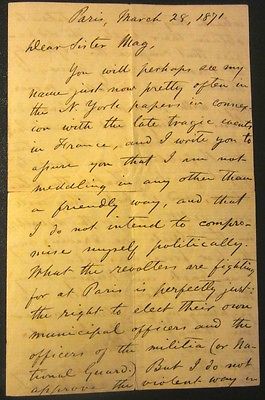 Paris, March 28, 1871.
Dear Sister Mag,
You will perhaps see my
name just now pretty often in
the N York papers in connex-
ion with the late tragic events
in France, and I write you to
assure you that I am not
meddling in any other than
a friendly way, and that
I do not intend to compro-
mise myself politically.
What the revolters are fighting
for at Paris is perfectly just:
the right to elect their own
municipal officers and the
officers of the militia (or Na-
tional Guard.) But I do not
approve the violent way in